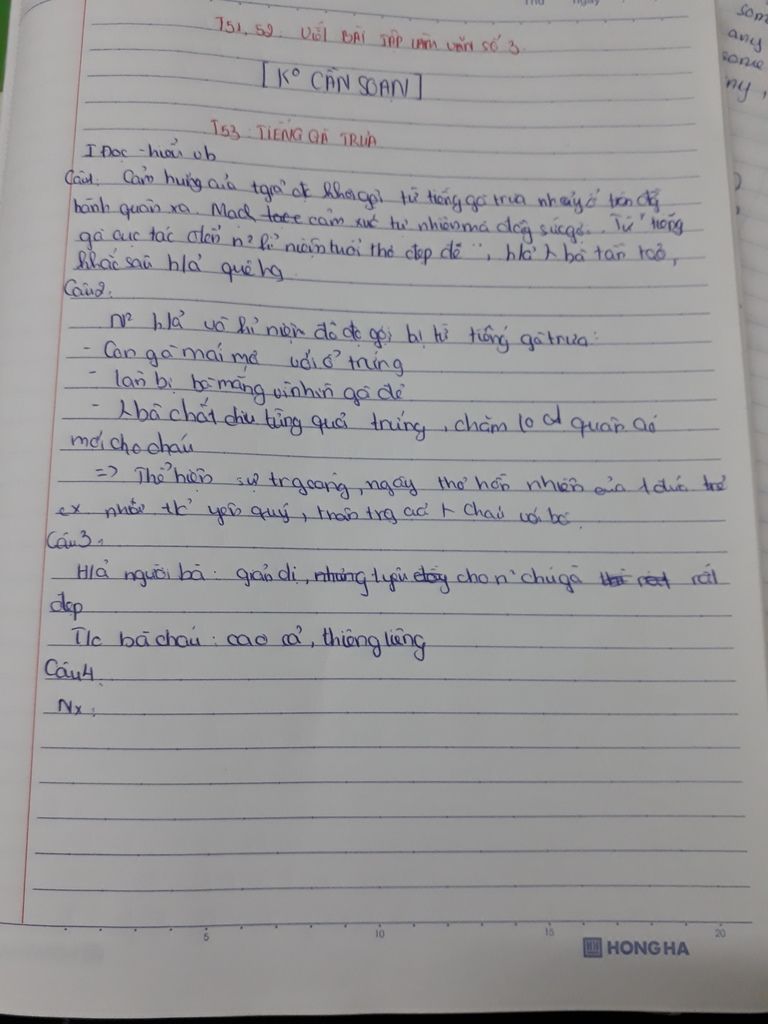 Thứ ngày
some
any
some
ny,
T51, 52: VIẾT BÀI TẬP LÀM VĂN SỐ 3
[K° CẦN SOẠN]
T53: TIẾNG GÀ TRƯA
I Đọc - hiểu vb
Câu1. Cảm hứng của tgiả đc khơi gợi từ tiếng gà trưa nhảy ổ trên đg
hành quân xa. Mạch cảm xúc tự nhiên mà Từ tiếng
gà cục tác đến kỉ niệm tuổi thơ đẹp đẽ, h/ả bà tần tảo,
khắc sâu h/ả quê hg
Câu2.
h/ả và kỉ niệm đã đc gợi lại từ tiếng gà trưa:
- Con gà mái mơ với ổ trứng
- lần bị bà mắng vì nhìn gà đẻ
- bà chắt chiu từng quả trứng, chăm lo quần áo
mới cho cháu
=> Thể hiện sự trg sáng, ngây thơ hồn nhiên của 1 đứa trẻ
yêu quý, trân trg của cháu với bà.
Câu3.
H/ả người bà: giản dị, chú gà rất
đẹp
T/c bà cháu: cao cả, thiêng liêng
Câu4.
Nx:
5 10 15 20
HONG HA